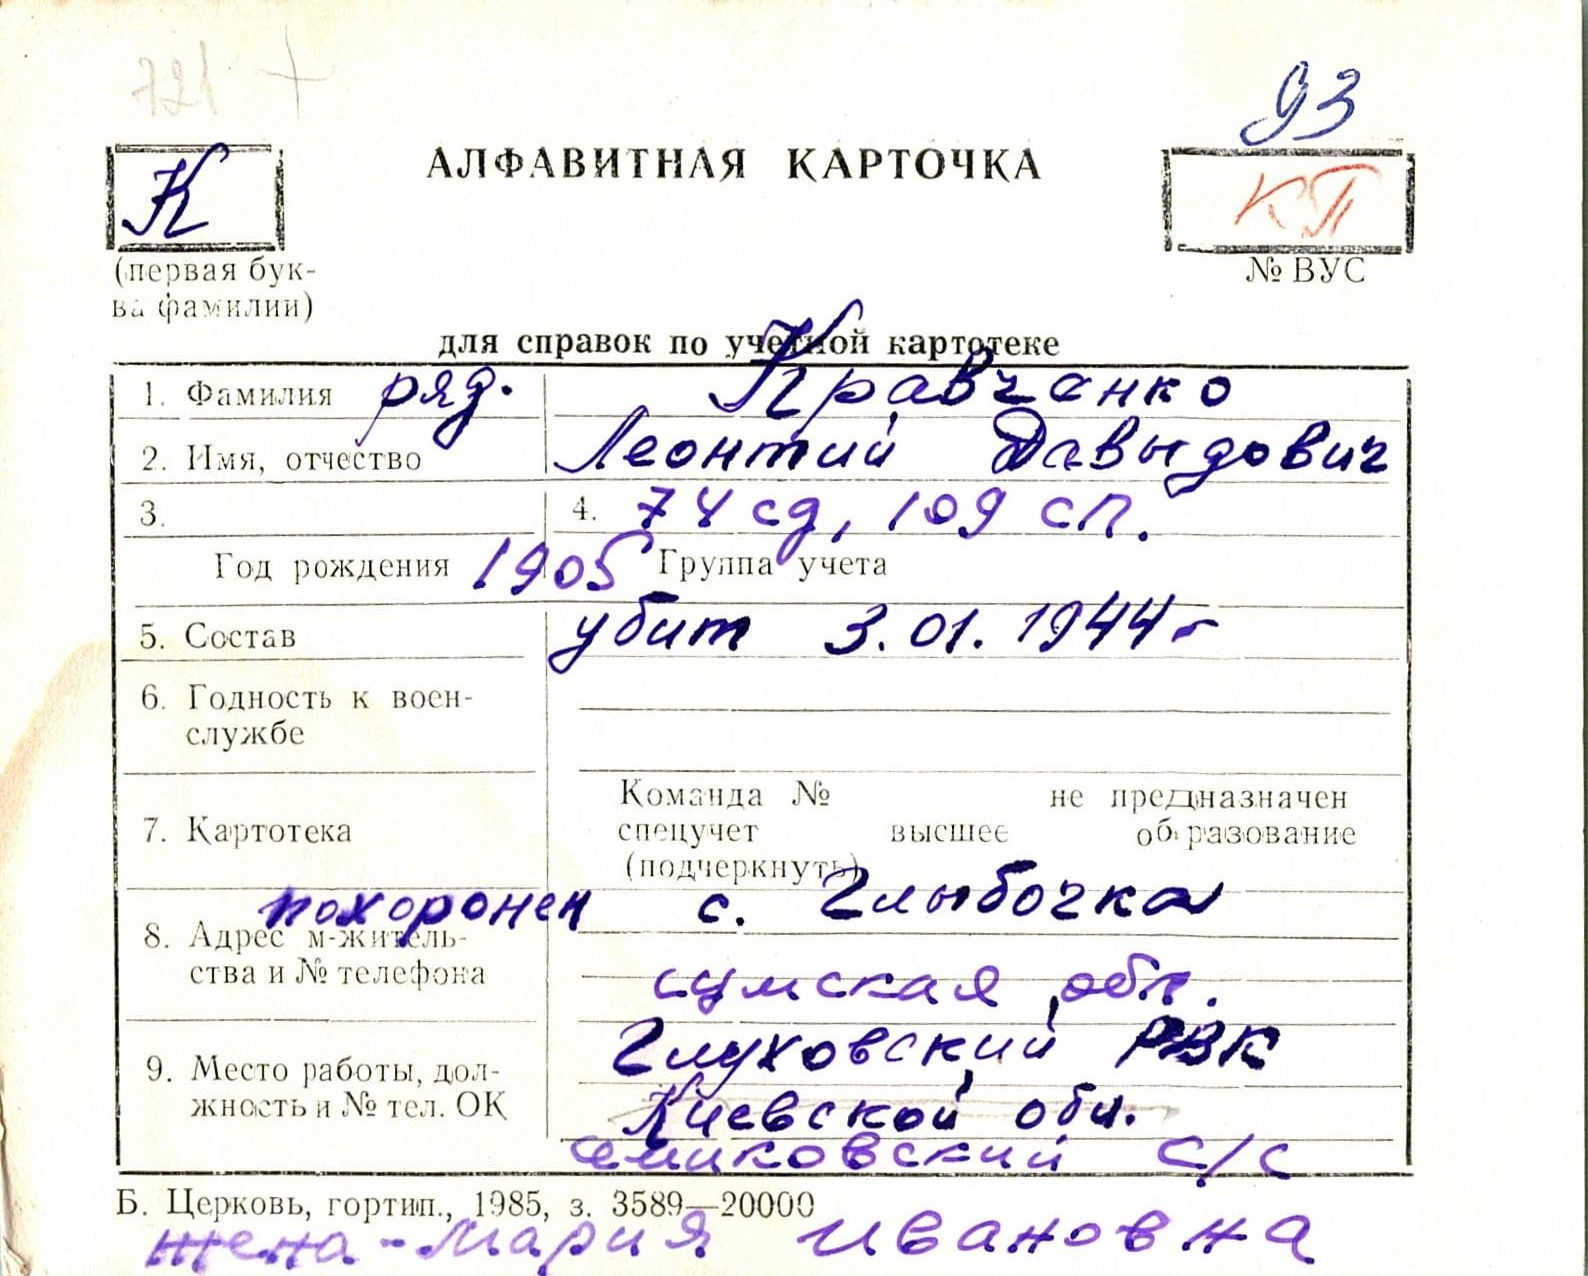 721 +
93
К
АЛФАВИТНАЯ КАРТОЧКА
КП
(первая бук-
ва фамилии)
№ ВУС
для справок по учетной картотеке
1. Фамилия ряд. Кравченко
2. Имя, отчество Леонтий Давыдович
3. 4. 74 сд, 109 сп.
Год рождения 1905 Группа учета
5. Состав убит 3.01.1944 г
6. Годность к воен-
службе
7. Картотека
Команда № не предназначен
спецучет высшее образование
(подчеркнуть)
похоронен с. Глыбочка
8. Адрес м-житель-
ства и № телефона
сумская обл.
Глуховский РВК
9. Место работы, дол-
жность и № тел. ОК
Киевской обл.
с/с
Б. Церковь, гортип., 1985, з. 3589—20000
жена - Мария Ивановна